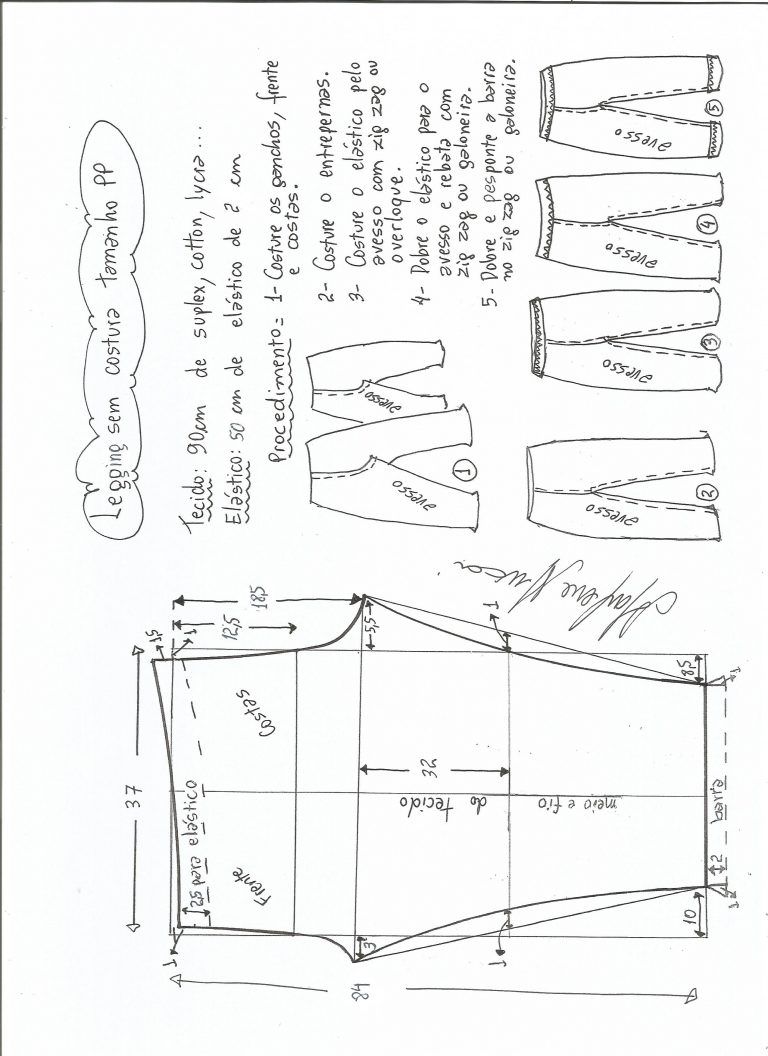 Legging sem costura tamanho PP
Tecido: 90cm de suplex, cotton, lycra...
Elástico: 50 cm de elástico de 2 cm
Procedimento = 1- Costure os ganchos, frente
e costas.
2- Costure o entrepernas.
3- Costure o elástico pelo
avesso com zig zag ou
overloque.
4- Dobre o elástico para o
avesso e rebata com
zig zag ou galoneira.
5- Dobre e pesponte a barra
no zig zag ou galoneira.
avesso
avesso
1
avesso
2
avesso
3
avesso
4
avesso
5
37
1,5
1
12,5
18,5
5,5
1
8,5
1
Costas
Frente
2,5 para elástico
1
32
meio e fio
do tecido
3
1
10
2
barra
84